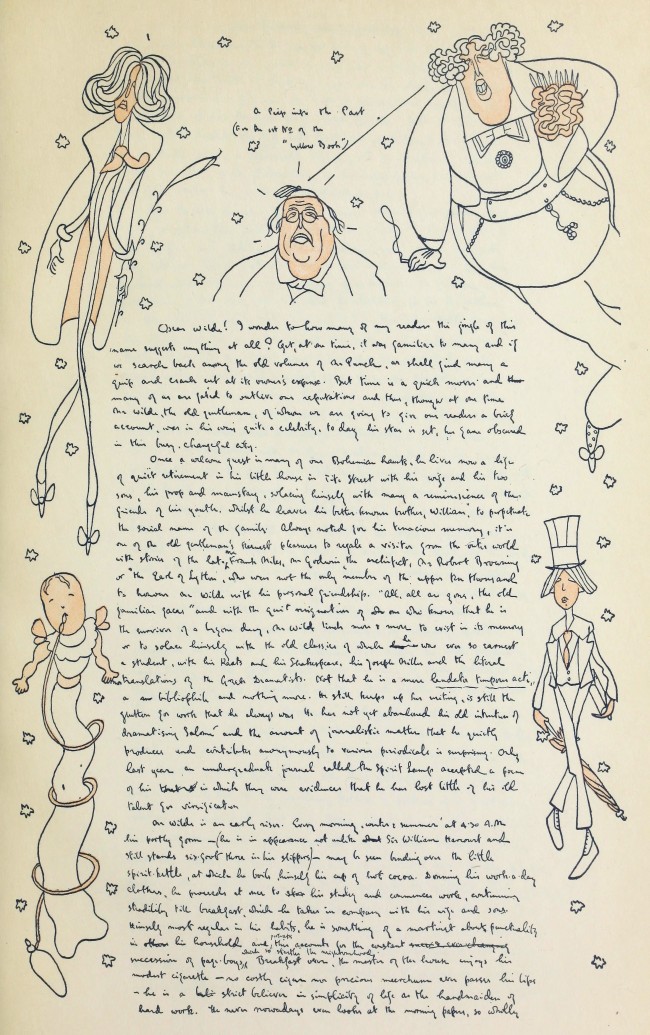 A Peep into the Past
(For the 1st No of the
"Yellow Book")
Oscar Wilde! I wonder to how many of my readers the jingle of this
name suggests anything at all? Yet, at one time, it was familiar to many and if
we search back among the old volumes of Mr Punch, we shall find many a
quip and crank cut at its owner's expense. But time is a quick mover and
many of us are fated to outlive our reputations and thus, though at one time
Mr Wilde, the old gentleman, of whom we are going to give our readers a brief
account, was in his way quite a celebrity, today his star is set, his fame obscured
in this busy, changeful city.
Once a welcome guest in many of our Bohemian haunts, he lives now a life
of quiet retirement in his little house in Tite Street with his wife and his two
sons, his prop and mainstay, solacing himself with many a reminiscence of the
friends of his youth. Whilst he leaves his better known brother, William, to perpetuate
the social name of the family. Always noted for his tenacious memory, it is
one of the old gentleman's keenest pleasures to regale a visitor from the outer world
with stories of the late Mr Frank Miles, Mr Godwin the architect, Mr Robert Browning
or the Earl of Lytton, who were not the only members of the upper ten thousand
to honour Mr Wilde with his personal friendship. "All, all are gone, the old
familiar faces" and with the quiet resignation of one who knows that he is
the survivor of a bygone day, Mr Wilde tends more & more to exist in its memory
or to solace himself with the old classics of which he was ever so earnest
a student, with his Keats and his Shakespeare, his Joseph Miller and the literal
translations of the Greek Dramatists. Not that he is a mere laudator temporis acti,
a bibliophile and nothing more. He still keeps up his writing, is still the
glutton for work that he always was. He has not yet abandoned his old intention of
dramatising Salomé and the amount of journalistic matter that he quietly
produces and contributes anonymously to various periodicals is surprising. Only
last year an undergraduate journal called the Spirit Lamp accepted a poem
of his in which there were evidences that he has lost little of his old
talent for versification
Mr Wilde is an early riser. Every morning, winter & summer at 4.30 A.M.
his portly form (he is in appearance not unlike Sir William Harcourt and
still stands six-foot three in his slippers) may be seen bending over the little
spirit-kettle, at which he boils himself his cup of hot cocoa. Donning his work-a-day
clothes, he proceeds at once to his study and commences work, continuing
steadily till breakfast, which he takes in company with his wife and sons
Himself most regular in his habits, he is something of a martinet about punctuality
in his household and perhaps this accounts for the constant
succession of page-boys, which so startles the neighbourhood. Breakfast over, the master of the house enjoys his
modest cigarette — no costly cigar nor precious meerschaum ever passes his lips
— he is a strict believer in simplicity of life as the handmaiden of
hard work. He never nowadays even looks at the morning papers, so wholly